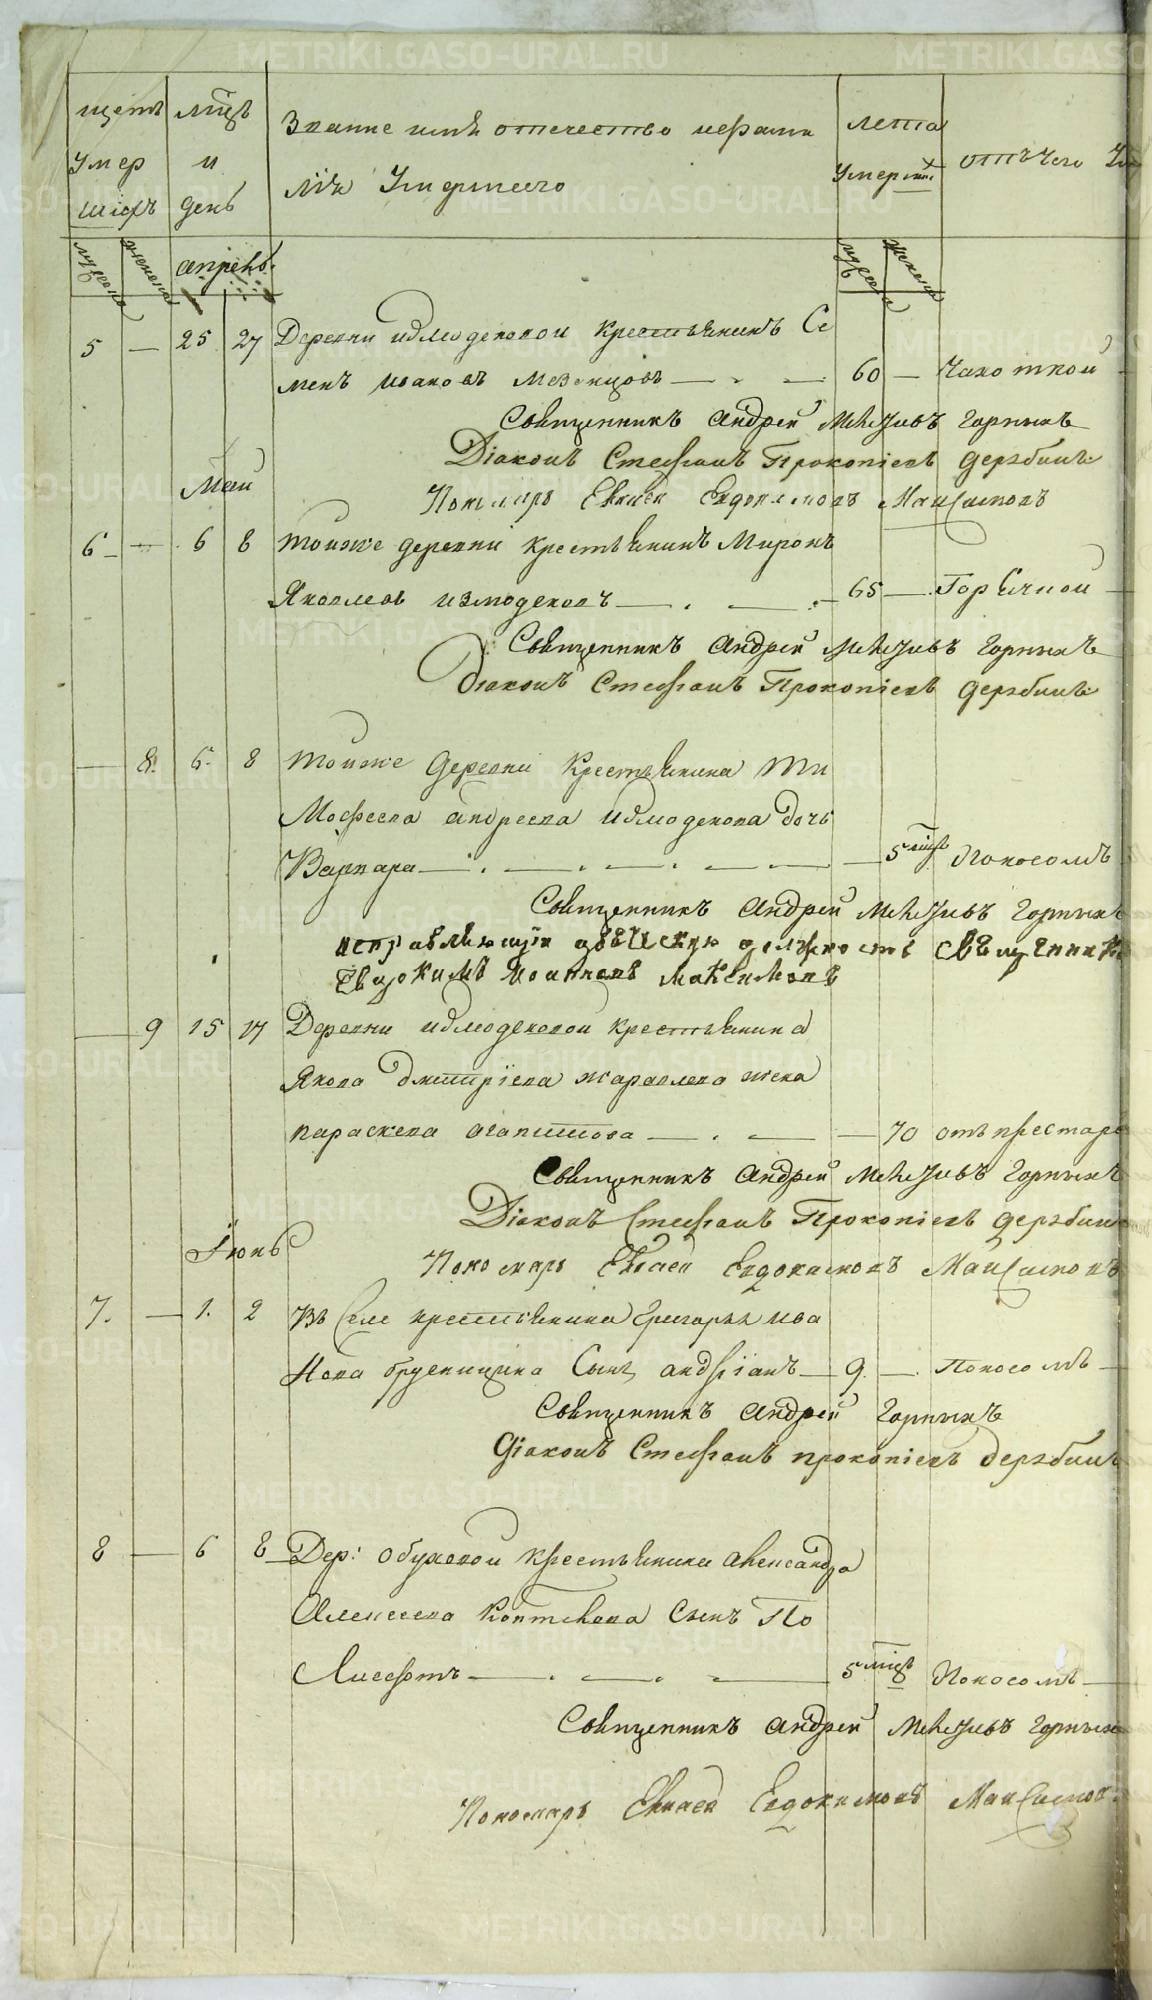 щетъ
умер
шихъ
мцъ
и
день
Званiе имя отечество и фами
лiя умершего
лета
умерших
отъ чего
мужеска
женска
апрель
мужеска
женска
5 — 25 27 Деревни измоденовой крестьянинъ Се
менъ ивановъ мезенцовъ — 60 — Чахоткой
Священникъ Андрей Горныхъ
Дiаконъ Стефанъ Прокопiевъ Дерябинъ
Май
Пономарь Евдокимовъ Максимовъ
6 — 6 8 тойже деревни крестьянинъ Миронъ
Яковлевъ измоденовъ — 65 — Горячкой
Священникъ Андрей Горныхъ
Дiаконъ Стефанъ Прокопiевъ Дерябинъ
— 8. 6. 8 тойже деревни крестьянина Ти
мофеева андреева измоденова дочь
Варвара — 5 мцъ Поносомъ
Священникъ Андрей Горныхъ
исправляющiй должность священник
Евдокимъ Иоанновъ Максимовъ
— 9 15 17 Деревни измоденовой крестьянина
Якова дмитрiева жаравлева жена
параскева агапитова — 70 отъ престаре
Священникъ Андрей Горныхъ
Дiаконъ Стефанъ Прокопiевъ Дерябин
Iюнь
Пономарь Евдокимовъ Максимовъ
7. — 1. 2 Въ селе крестьянина Григорья ива
нова брусницина Сынъ андрiанъ — 9 — Поносомъ
Священникъ Андрей Горныхъ
Дiаконъ Стефанъ прокопiевъ Дерябинъ
8 — 6 8 Дер: обуховой крестьянина александра
Алексеева Коптелова Сынъ По
лиефтъ — 5 мцъ Поносомъ
Священникъ Андрей Горных
Пономарь Евдокимовъ Максимов
METRIKI.GASO-URAL.RU